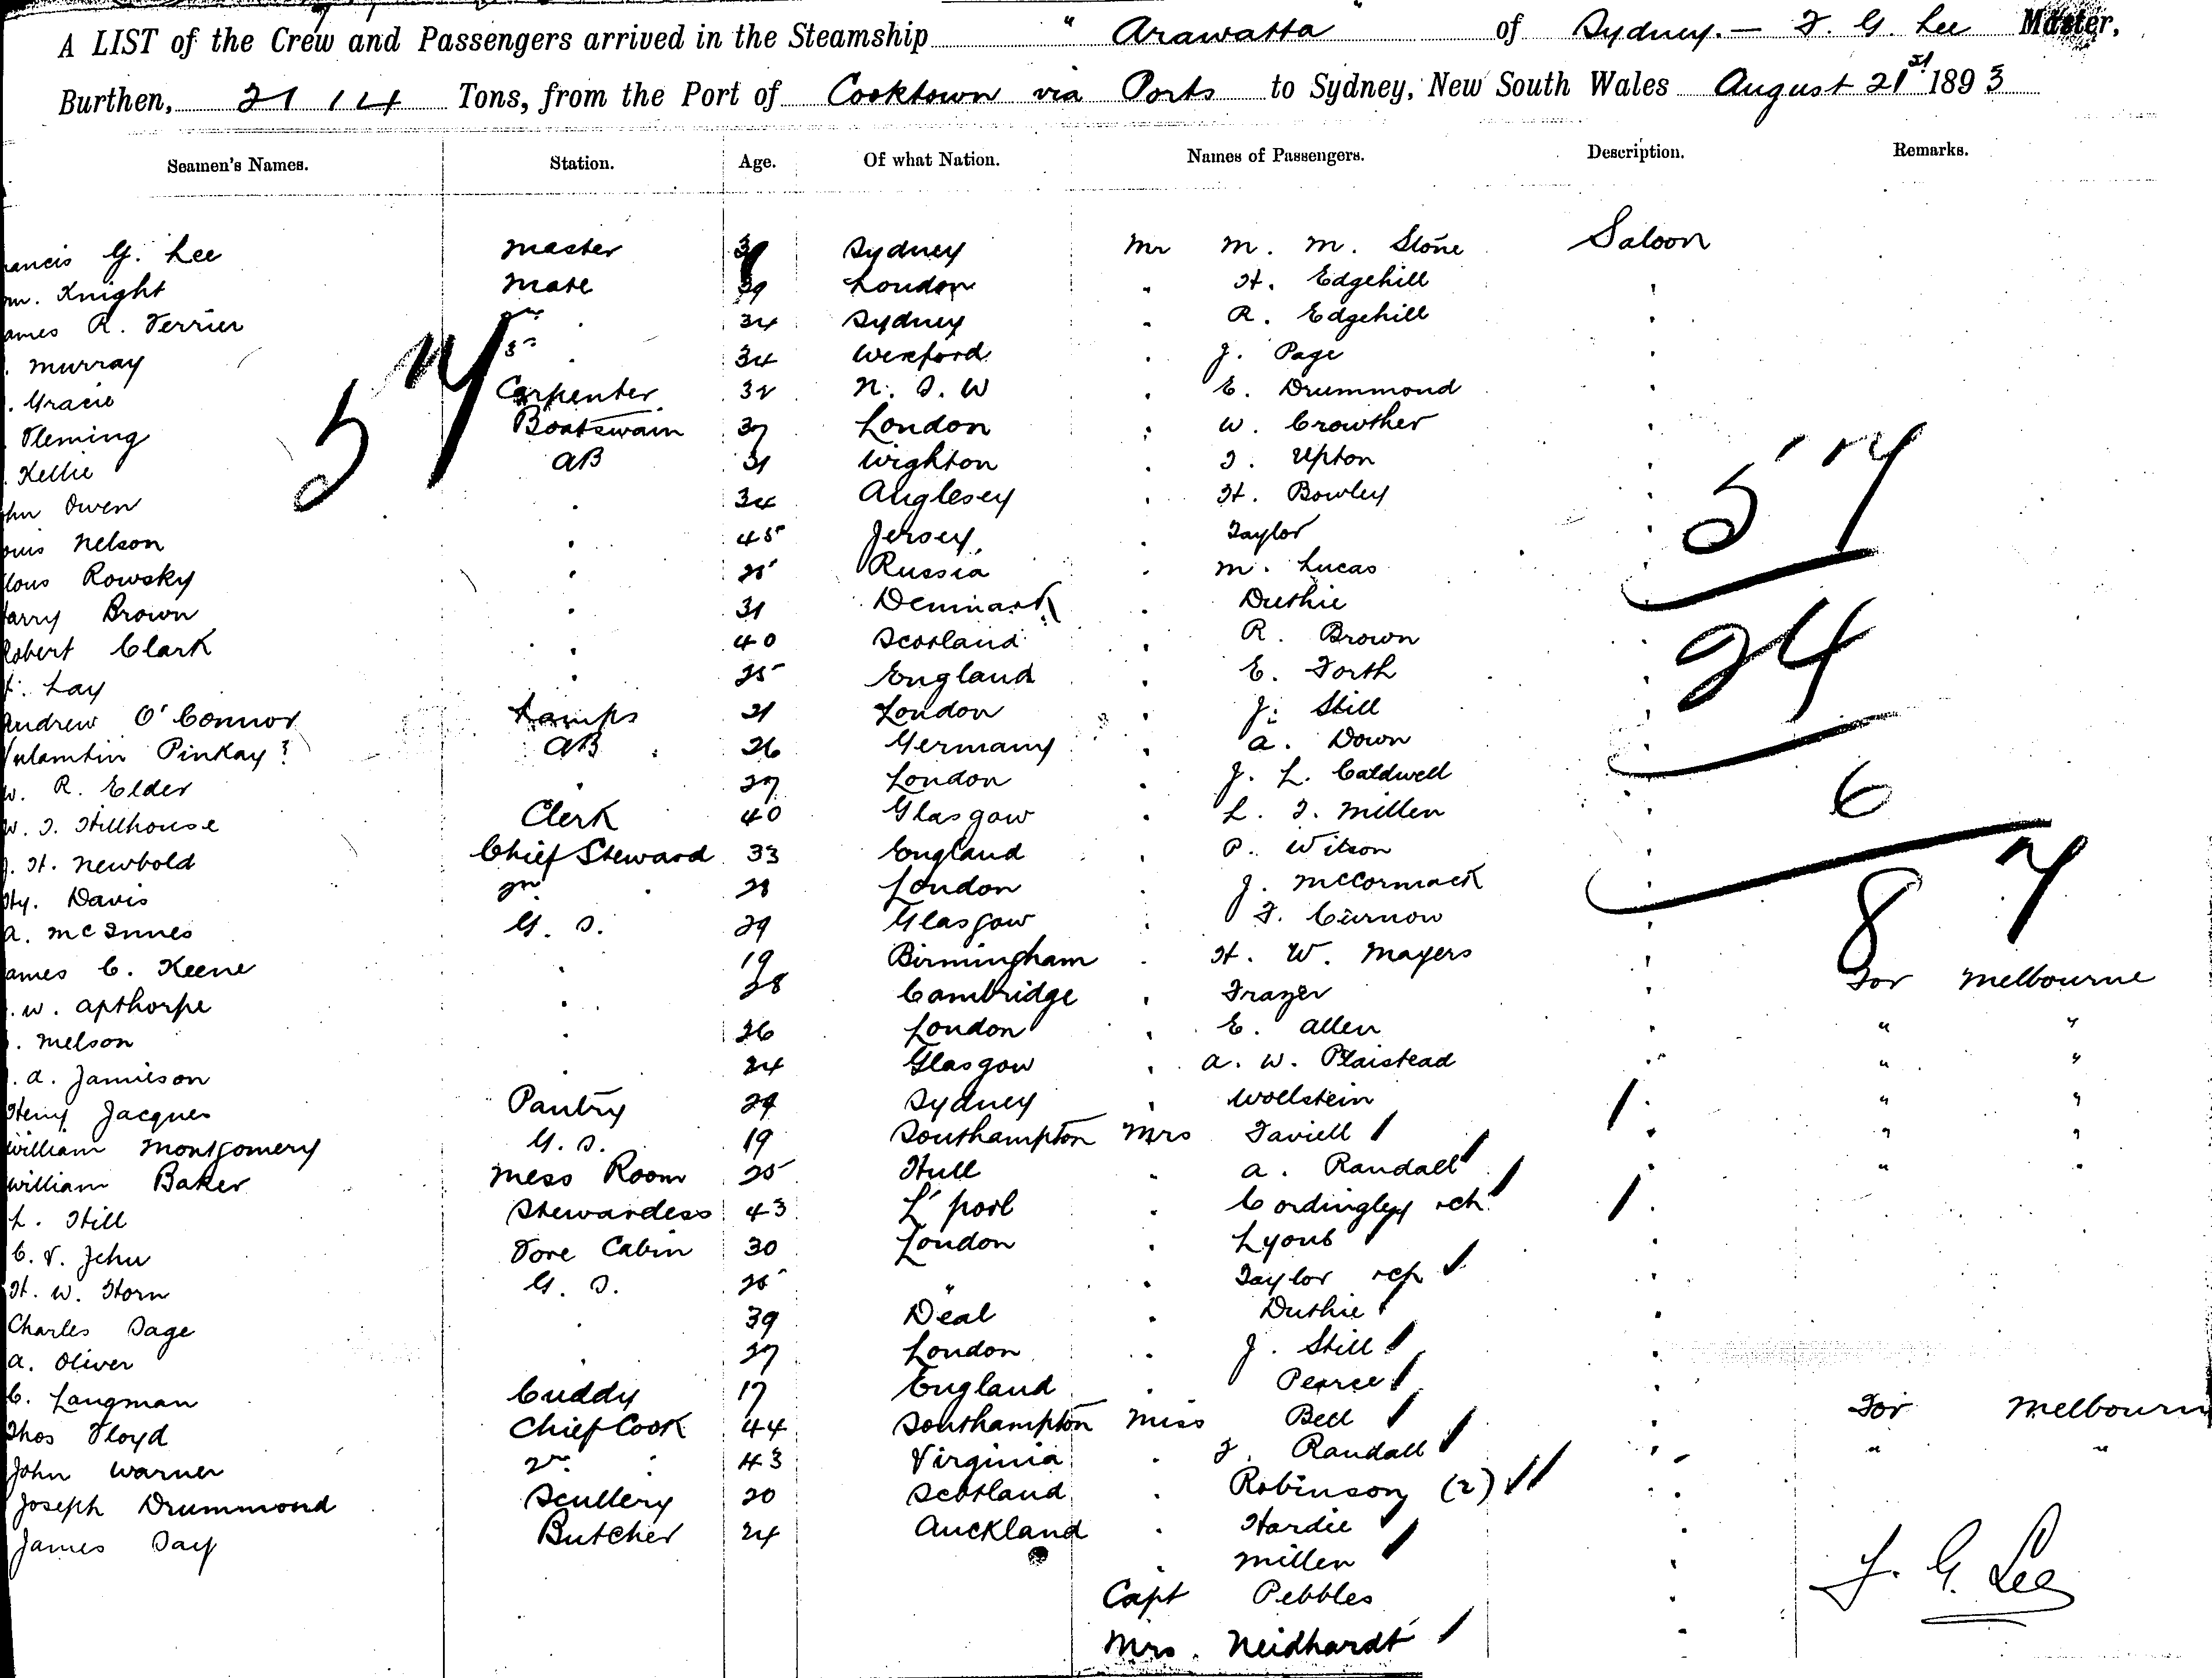 A LIST of the Crew and Passengers arrived in the Steamship "Arawatta" of Sydney. — F. G. Lee Master,
Burthen, 2114 Tons, from the Port of Cooktown via Ports to Sydney, New South Wales August 21st 1893
Seamen's Names. Station. Age. Of what Nation. Names of Passengers. Description. Remarks.
ancis G. Lee Master Sydney Mr M. M. Stone Saloon
m. Knight Mate 39 London " H. Edgehill "
ames R. Ferrier 2nd " 34 Sydney " R. Edgehill "
. Murray 3rd " 34 Wexford " J. Page "
. Gracie Carpenter 32 N. S. W " E. Drummond "
. Fleming Boatswain 37 London " W. Crowther "
. Kellie AB 31 Wighton " F. Upton "
hn Owen " 34 Anglesey " H. Bowley "
ouis Nelson " 45 Jersey " Taylor "
lous Rowsky " 25 Russia " M. Lucas "
arry Brown " 31 Denmark " Duthie "
Robert Clark " 40 Scotland " R. Brown "
. Lay " 25 England " E. Forth "
Andrew O'Connor Lamps 21 London " J. Still "
Valamtin Pinkay? AB 26 Germany " A. Down "
W. R. Elder " 27 London " J. L. Caldwell "
W. S. Hillhouse Clerk 40 Glasgow " L. F. Millen "
J. H. Newbold Chief Steward 33 England " P. Wilson "
Hy. Davis 2nd " 28 London " J. McCormack "
A. McInnes G. S. 29 Glasgow " F. Curnow "
ames C. Keene " 19 Birmingham " H. W. Mayers "
. W. Apthorpe " 28 Cambridge " Frazer " For Melbourne
. Melson " 26 London " E. Allen " " "
. A. Jamieson " 24 Glasgow " A. W. Plaistead " " "
Heny Jacques Pantry 24 Sydney " Wollstein " " "
William Montgomery G. S. 19 Southampton Mrs Taviell " " "
William Baker Mess Room 25 Hull " A. Randall " " "
L. Hill Stewardess 43 L'pool " Cordingley +ch "
C. V. Jehu Fore Cabin 30 London " Lyons "
H. W. Horn G. S. 25 " " Taylor "
Charles Sage " 39 Deal " Duthie "
A. Oliver " 27 London " J. Still "
C. Langman Cuddy 17 England " Pearce "
Thos Floyd Chief Cook 44 Southampton Miss Bell " For Melbourn
John Warner 2nd " 43 Virginia " F. Randall " " "
Joseph Drummond Scullery 20 Scotland " Robinson (2) "
James Day Butcher 24 Auckland " Hardie "
" Millen "
Capt Pebbles "
Mrs. Neidhardt "
57
57
24
6
87
F. G. Lee